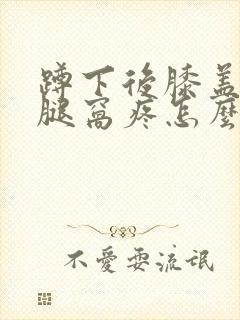 蹲下後膝蓋
腿窩疼怎麼
不愛耍流氓